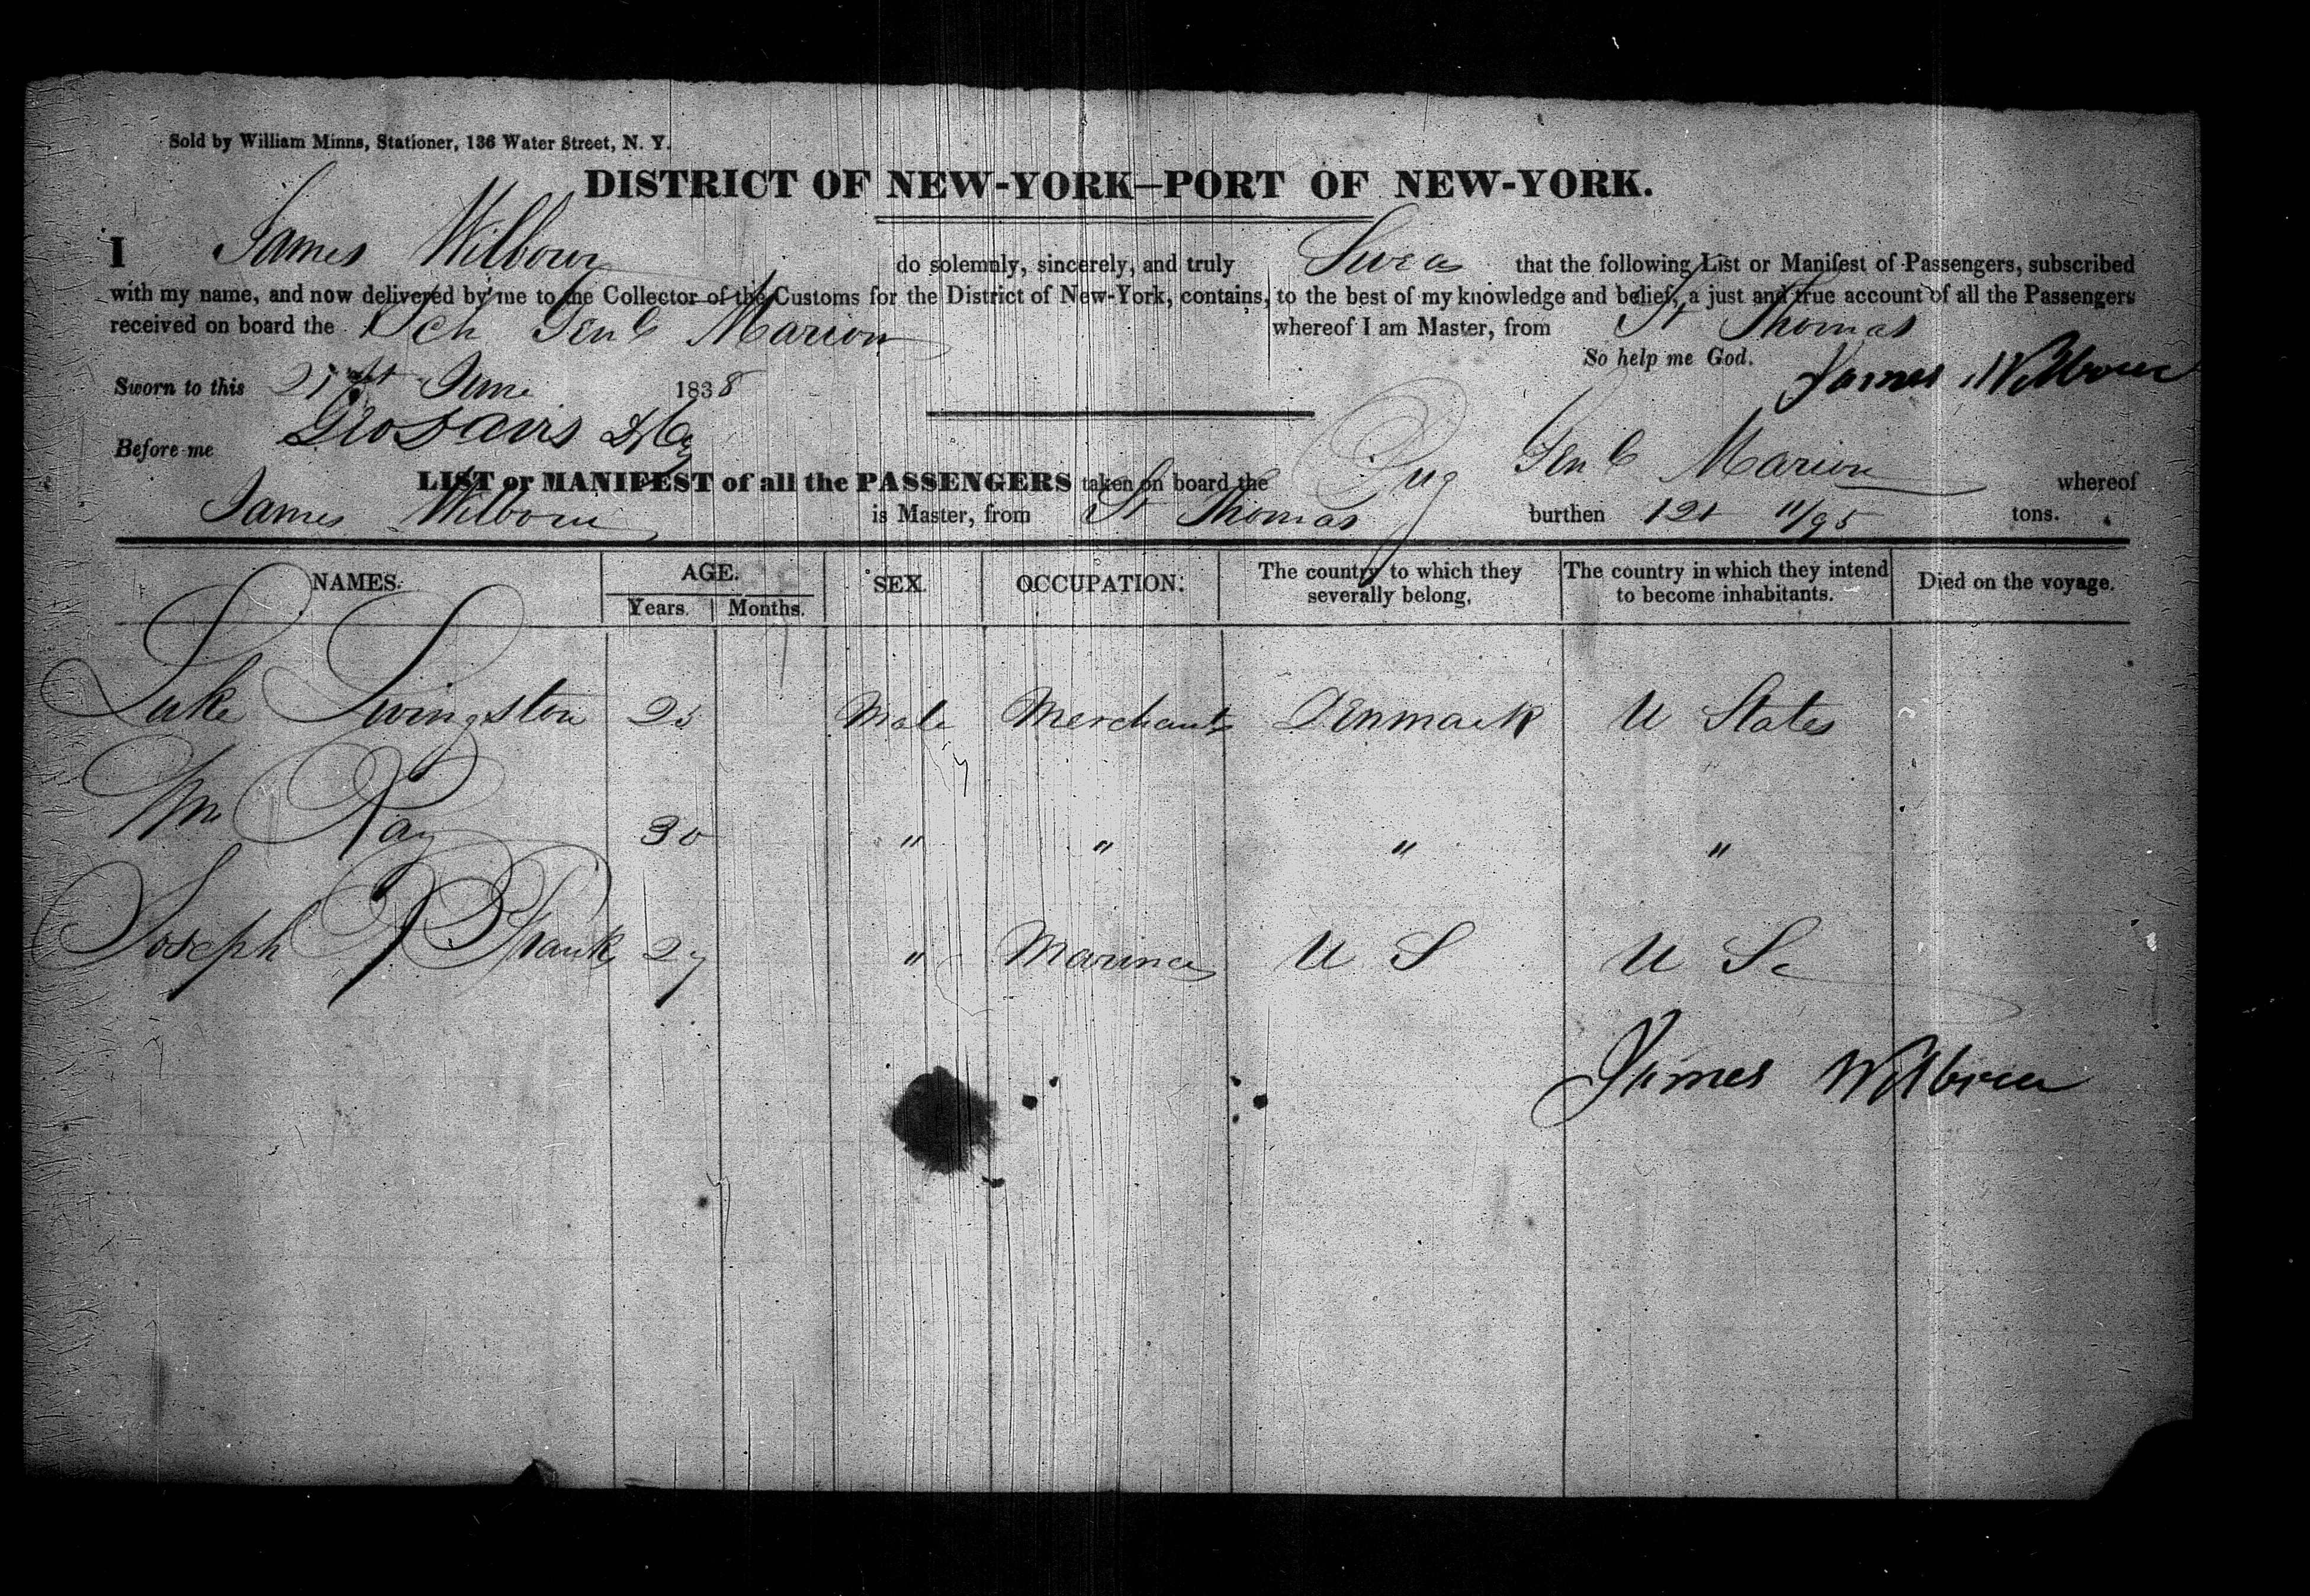 Sold by William Minns, Stationer, 136 Water Street, N. Y.
DISTRICT OF NEW-YORK—PORT OF NEW-YORK.
I James Wilbour do solemnly, sincerely, and truly Swear that the following List or Manifest of Passengers, subscribed
with my name, and now delivered by me to the Collector of the Customs for the District of New-York, contains, to the best of my knowledge and belief, a just and true account of all the Passengers
received on board the Sch Genl Marion whereof I am Master, from St Thomas
So help me God. James Wilbour
Sworn to this 21st June 1838
Before me Geo Davis
LIST or MANIFEST of all the PASSENGERS taken on board the Genl Marion whereof
James Wilbour is Master, from St Thomas burthen 121 11/95 tons.
NAMES. AGE. SEX. OCCUPATION. The country to which they severally belong. The country in which they intend to become inhabitants. Died on the voyage.
Years. Months.
Luke Livingston 25 Male Merchant Denmark U States
Wm Ray 30 " " " "
Joseph Frank 27 " Mariner U S U S
James Wilbour